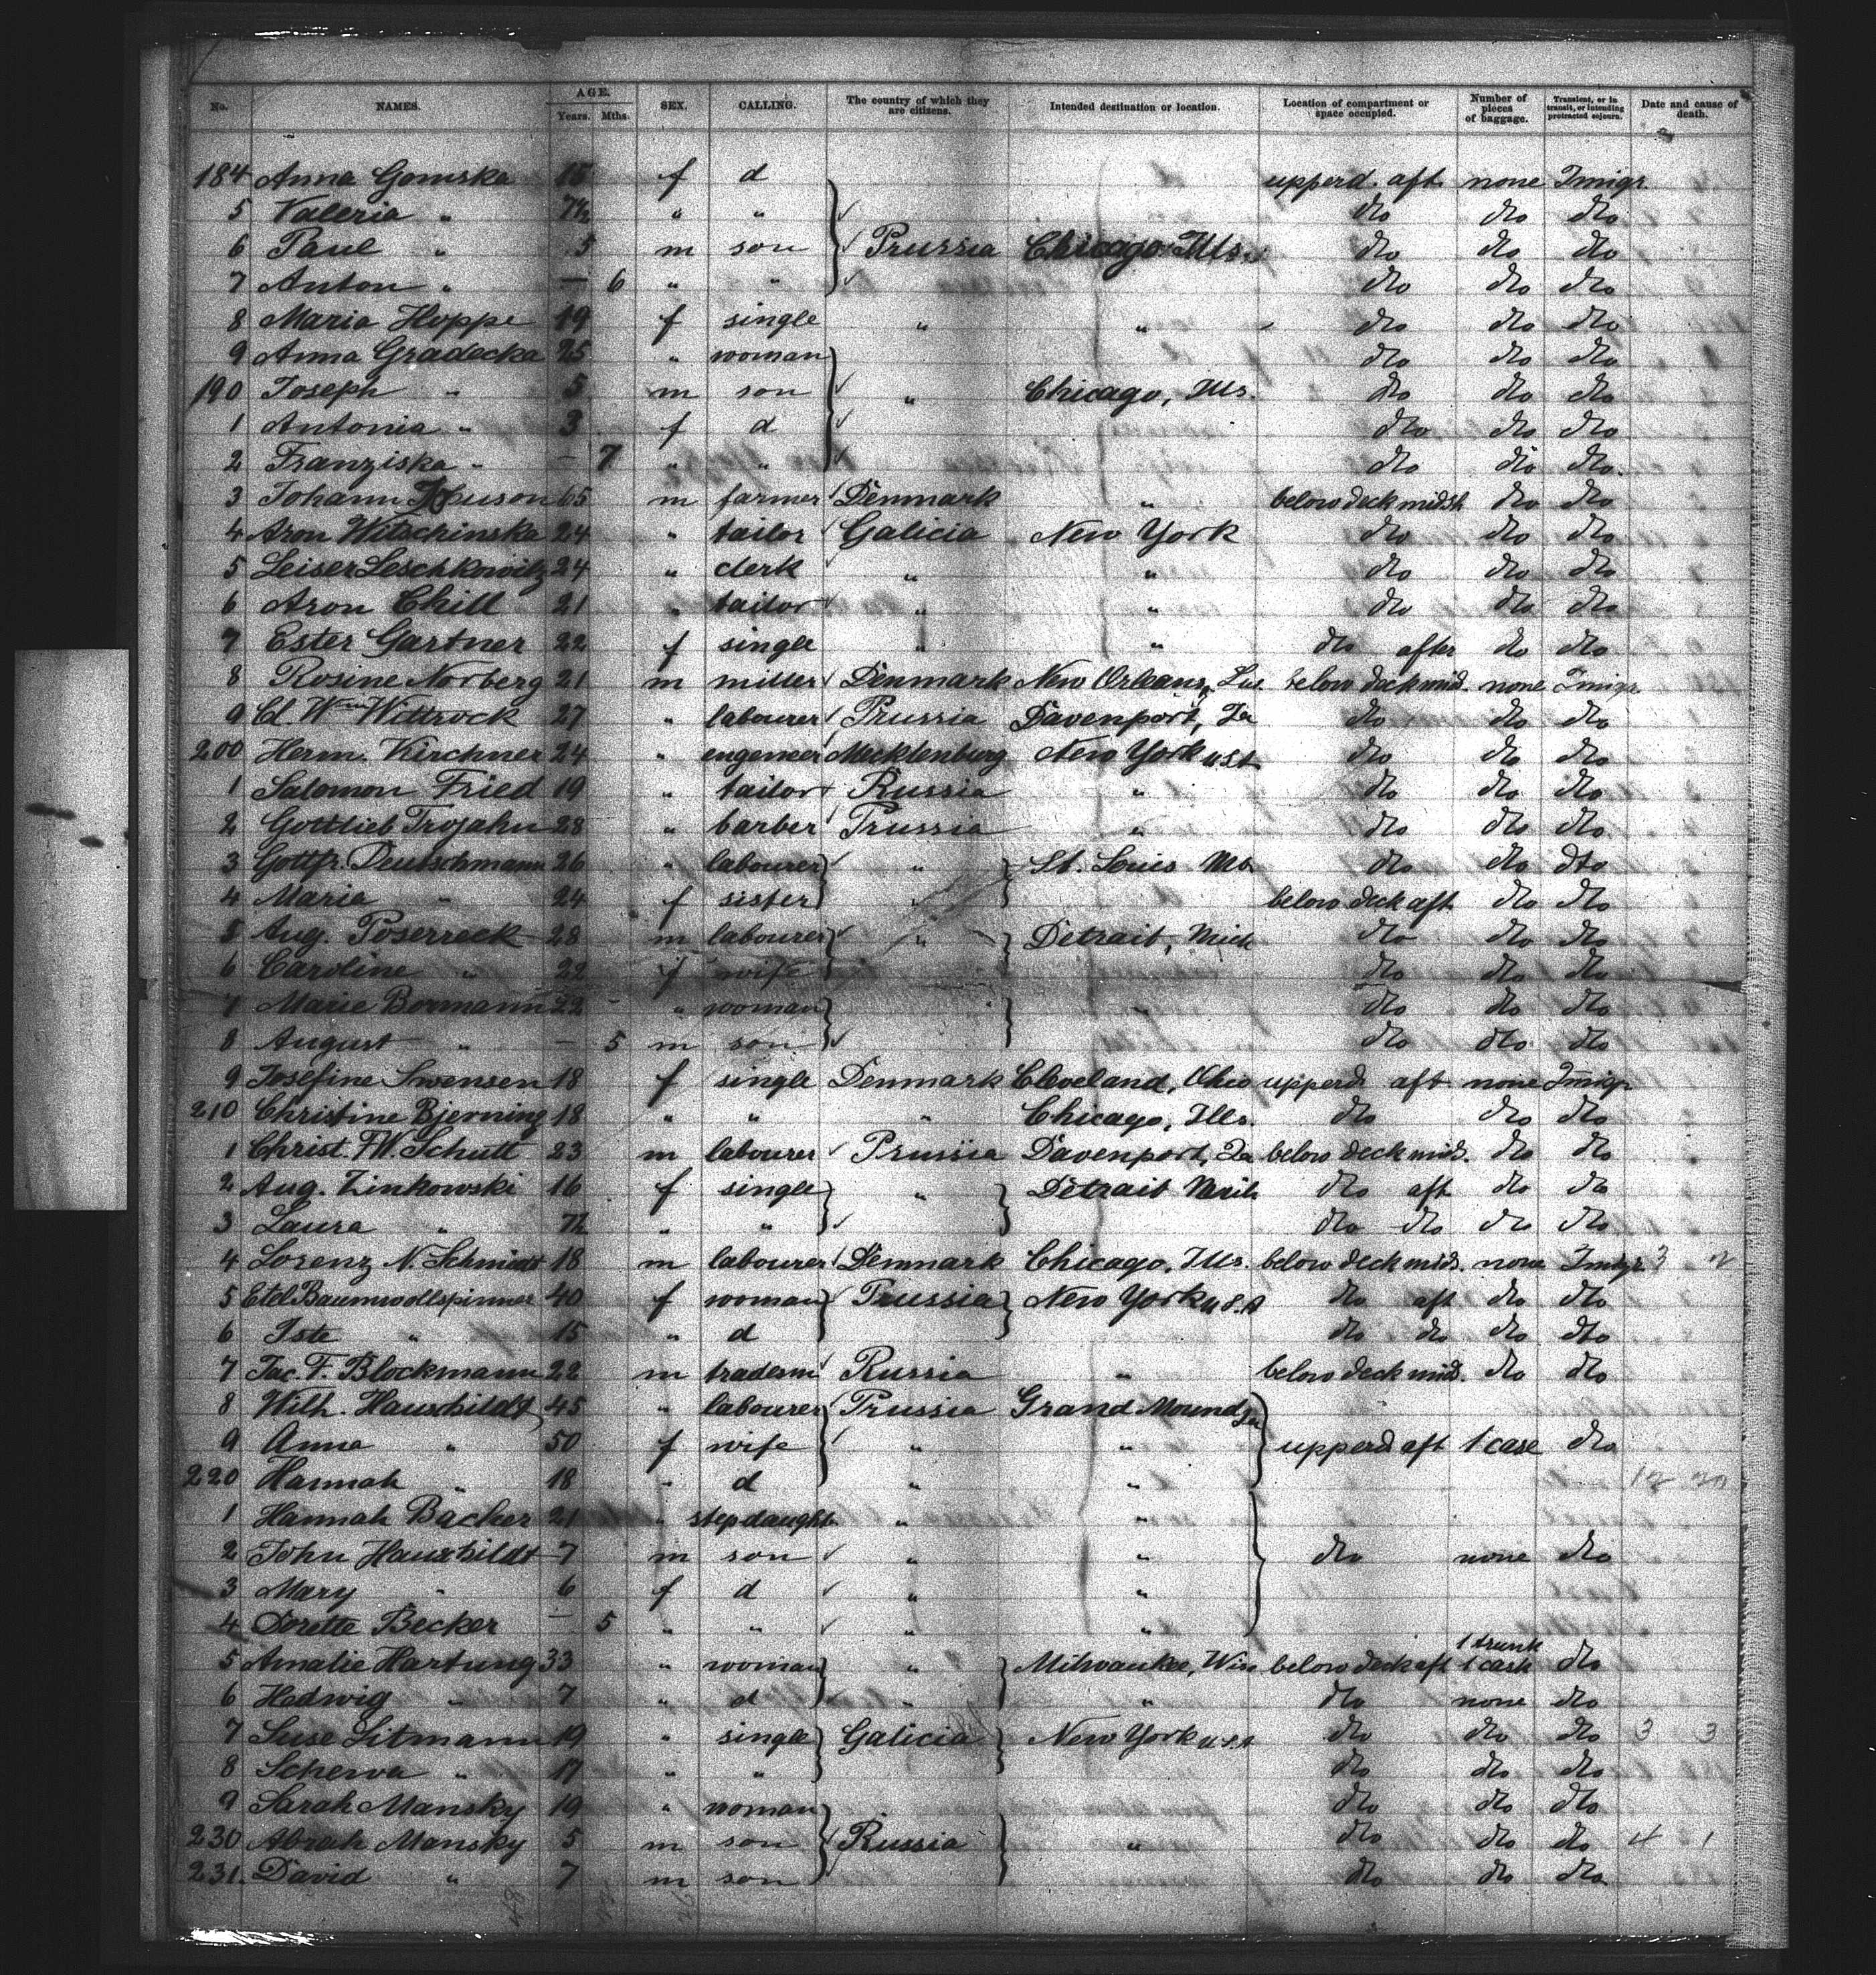 No. NAMES. AGE. Years. Mths. SEX. CALLING. The country of which they are citizens. Intended destination or location. Location of compartment or space occupied. Number of pieces of baggage. Transient, or in transit, or intending protracted sojourn. Date and cause of death.
184 Anna Gomska 15 f d upperd. aft. none Imigr
5 Valeria " 7½ " " dto dto dto
6 Paul " 5 m son Prussia Chicago Ills. dto dto dto
7 Anton " — 6 " " dto dto dto
8 Maria Hoppe 19 f single " " dto dto dto
9 Anna Gradecka 25 " woman dto dto dto
190 Joseph " 5 m son " Chicago, Ills. dto dto dto
1 Antonia " 3 f d dto dto dto
2 Franziska " — 7 " " dto dto dto
3 Johann 65 m farmer Denmark " below deck midsh dto dto
4 Aron Witschinska 24 " tailor Galicia New York dto dto dto
5 Leiser Leschkowitz 24 " clerk " " dto dto dto
6 Aron Chill 21 " tailor " " dto dto dto
7 Ester Gartner 22 f single " " dto after do dto
8 Rosine Norberg 21 m miller Denmark New Orleans, Lus. below deck mid. none Imigr.
9 Cl. Wm Wittrock 27 " labourer Prussia Davenport, Ia dto dto dto
200 Herm. Kirchner 24 " engeneer Mecklenburg New York U.St. dto dto dto
1 Salomon Fried 19 " tailor Russia " dto dto dto
2 Gottlieb Trojahn 28 " barber Prussia " dto dto dto
3 Gottfr. Deutschmann 26 " labourer " St. Louis Mo. dto dto dto
4 Maria " 24 f sister " below deck aft. dto dto
5 Aug. Poserreck 28 m labourer " Detrait, Mich dto dto dto
6 Caroline " 22 f wife dto dto dto
7 Marie Bormann 22 " woman " " dto dto dto
8 August " — 5 m son dto dto dto
9 Josefine Swensen 18 f single Denmark Cleveland, Ohio upperd. aft none Imigr
210 Christine Bjerning 18 " " " Chicago, Ills. dto dto dto
1 Christ. FW. Schutt 23 m labourer Prussia Davenport, Ia below deck mid. dto dto
2 Aug. Zinkowski 16 f single " Detrait dto aft dto dto
3 Laura " 7½ " " dto dto dto dto
4 Lorenz N. Schmidt 18 m labourer Denmark Chicago, Ills. below deck mid. none Imigr 3
5 Etel Baumwollspinner 40 f woman Prussia New York U.S.A dto aft dto dto
6 Iste " 15 " d dto do dto dto
7 Jac. F. Blockmann 22 m tradesm Russia " below deck mid. dto dto
8 Wilh. Hauschildt 45 " labourer Prussia Grand Mound Ia
9 Anna " 50 f wife " " upperd aft 1 case dto
220 Hannah " 18 " d " "
1 Hannah Backer 21 " stepdaught " "
2 John Hauschildt 7 m son " " dto none dto
3 Mary " 6 f d " "
4 Dorette Becker — 5 " " " "
1 trunk
5 Amalie Hartung 33 " woman " Milwaukee, Wis below deck aft 1 cask dto
6 Hedwig " 7 " d " " dto none dto
7 Suse Litmann 19 " single Galicia New York U.S.A dto dto dto 3 3
8 Scherva " 17 " " dto dto dto
9 Sarah Mansky 19 " woman dto dto dto
230 Abrah Mansky 5 m son Russia " dto dto dto 4 1
231. David " 7 m son dto dto dto